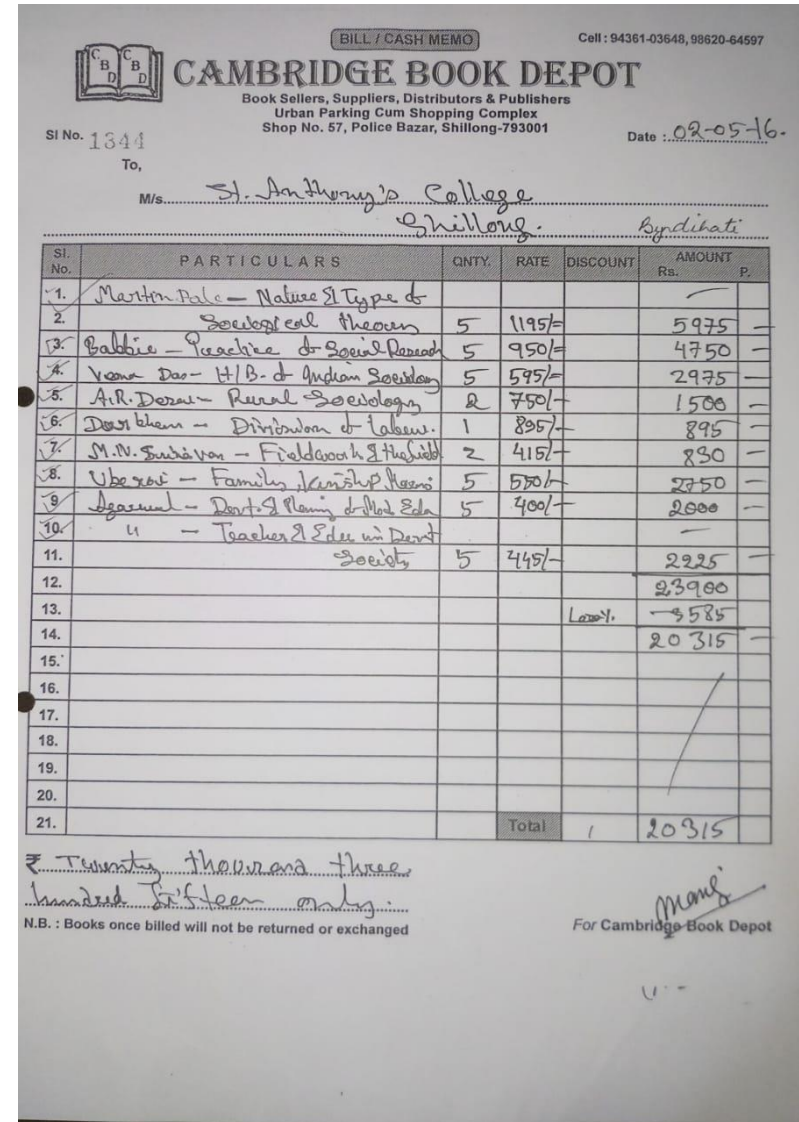 BILL / CASH MEMO
Cell : 94361-03648, 98620-64597
CBD CBD
CAMBRIDGE BOOK DEPOT
Book Sellers, Suppliers, Distributors & Publishers
Urban Parking Cum Shopping Complex
Shop No. 57, Police Bazar, Shillong-793001
Sl No. 1344
Date : 02-05-16.
To,
M/s. St. Anthony's College
Shillong. Byndihati
Sl. No. PARTICULARS QNTY. RATE DISCOUNT AMOUNT Rs. P.
1. Martin Pale — Nature & Type of —
2. Sociological theory 5 1195/= 5975 —
3. Babbie — Practice of Social Research 5 950/= 4750 —
4. Veena Das — H/B. of Indian Sociology 5 595/= 2975 —
5. A.R. Desai — Rural Sociology 2 750/- 1500 —
6. Durkhem — Division of Labour. 1 895/- 895 —
7. M.N. Srinivan — Fieldwork & the field 2 415/- 830 —
8. Uberoi — Family, Kinship 5 550/- 2750 —
9 Agarwal — Devt. & Planing of Mod Edu 5 400/- 2000 —
10. " — Teacher & Edu in Devt —
11. Society 5 445/- 2225 —
12. 23900
13. — 3585
14. 20315 —
15.
16.
17.
18.
19.
20.
21. Total 20315
₹ Twenty thousand three
hundred fifteen only.
N.B. : Books once billed will not be returned or exchanged
For Cambridge Book Depot